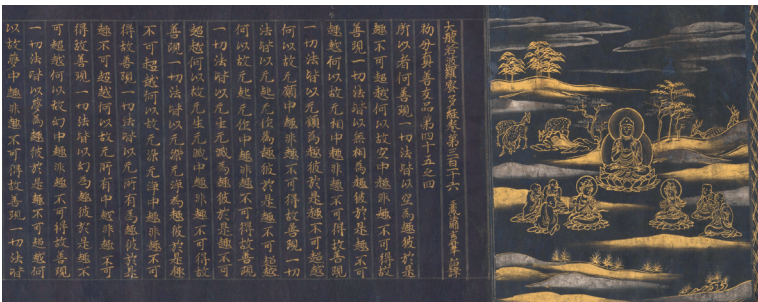 大般若波羅蜜多經卷第三百一十六 三藏法師玄奘奉詔譯
初分真善友品第四十五之四
所以者何善現一切法皆以空為趣彼於是
趣不可超越何以故空中趣非趣不可得故
善現一切法皆以無相為趣彼於是趣不可
超越何以故无相中趣非趣不可得故善現
一切法皆以无願為趣彼於是趣不可超越
何以故无願中趣非趣不可得故善現一切
法皆以无起无作為趣彼於是趣不可超越
何以故无起无作中趣非趣不可得故善現
一切法皆以无生无滅為趣彼於是趣不可
超越何以故无生无滅中趣非趣不可得故
善現一切法皆以无染无淨為趣彼於是趣
不可超越何以故无染无淨中趣非趣不可
得故善現一切法皆以无所有為趣彼於是
趣不可超越何以故无所有中趣非趣不可
得故善現一切法皆以幻為趣彼於是趣不
可超越何以故幻中趣非趣不可得故善現
一切法皆以夢為趣彼於是趣不可超越何
以故夢中趣非趣不可得故善現一切法皆